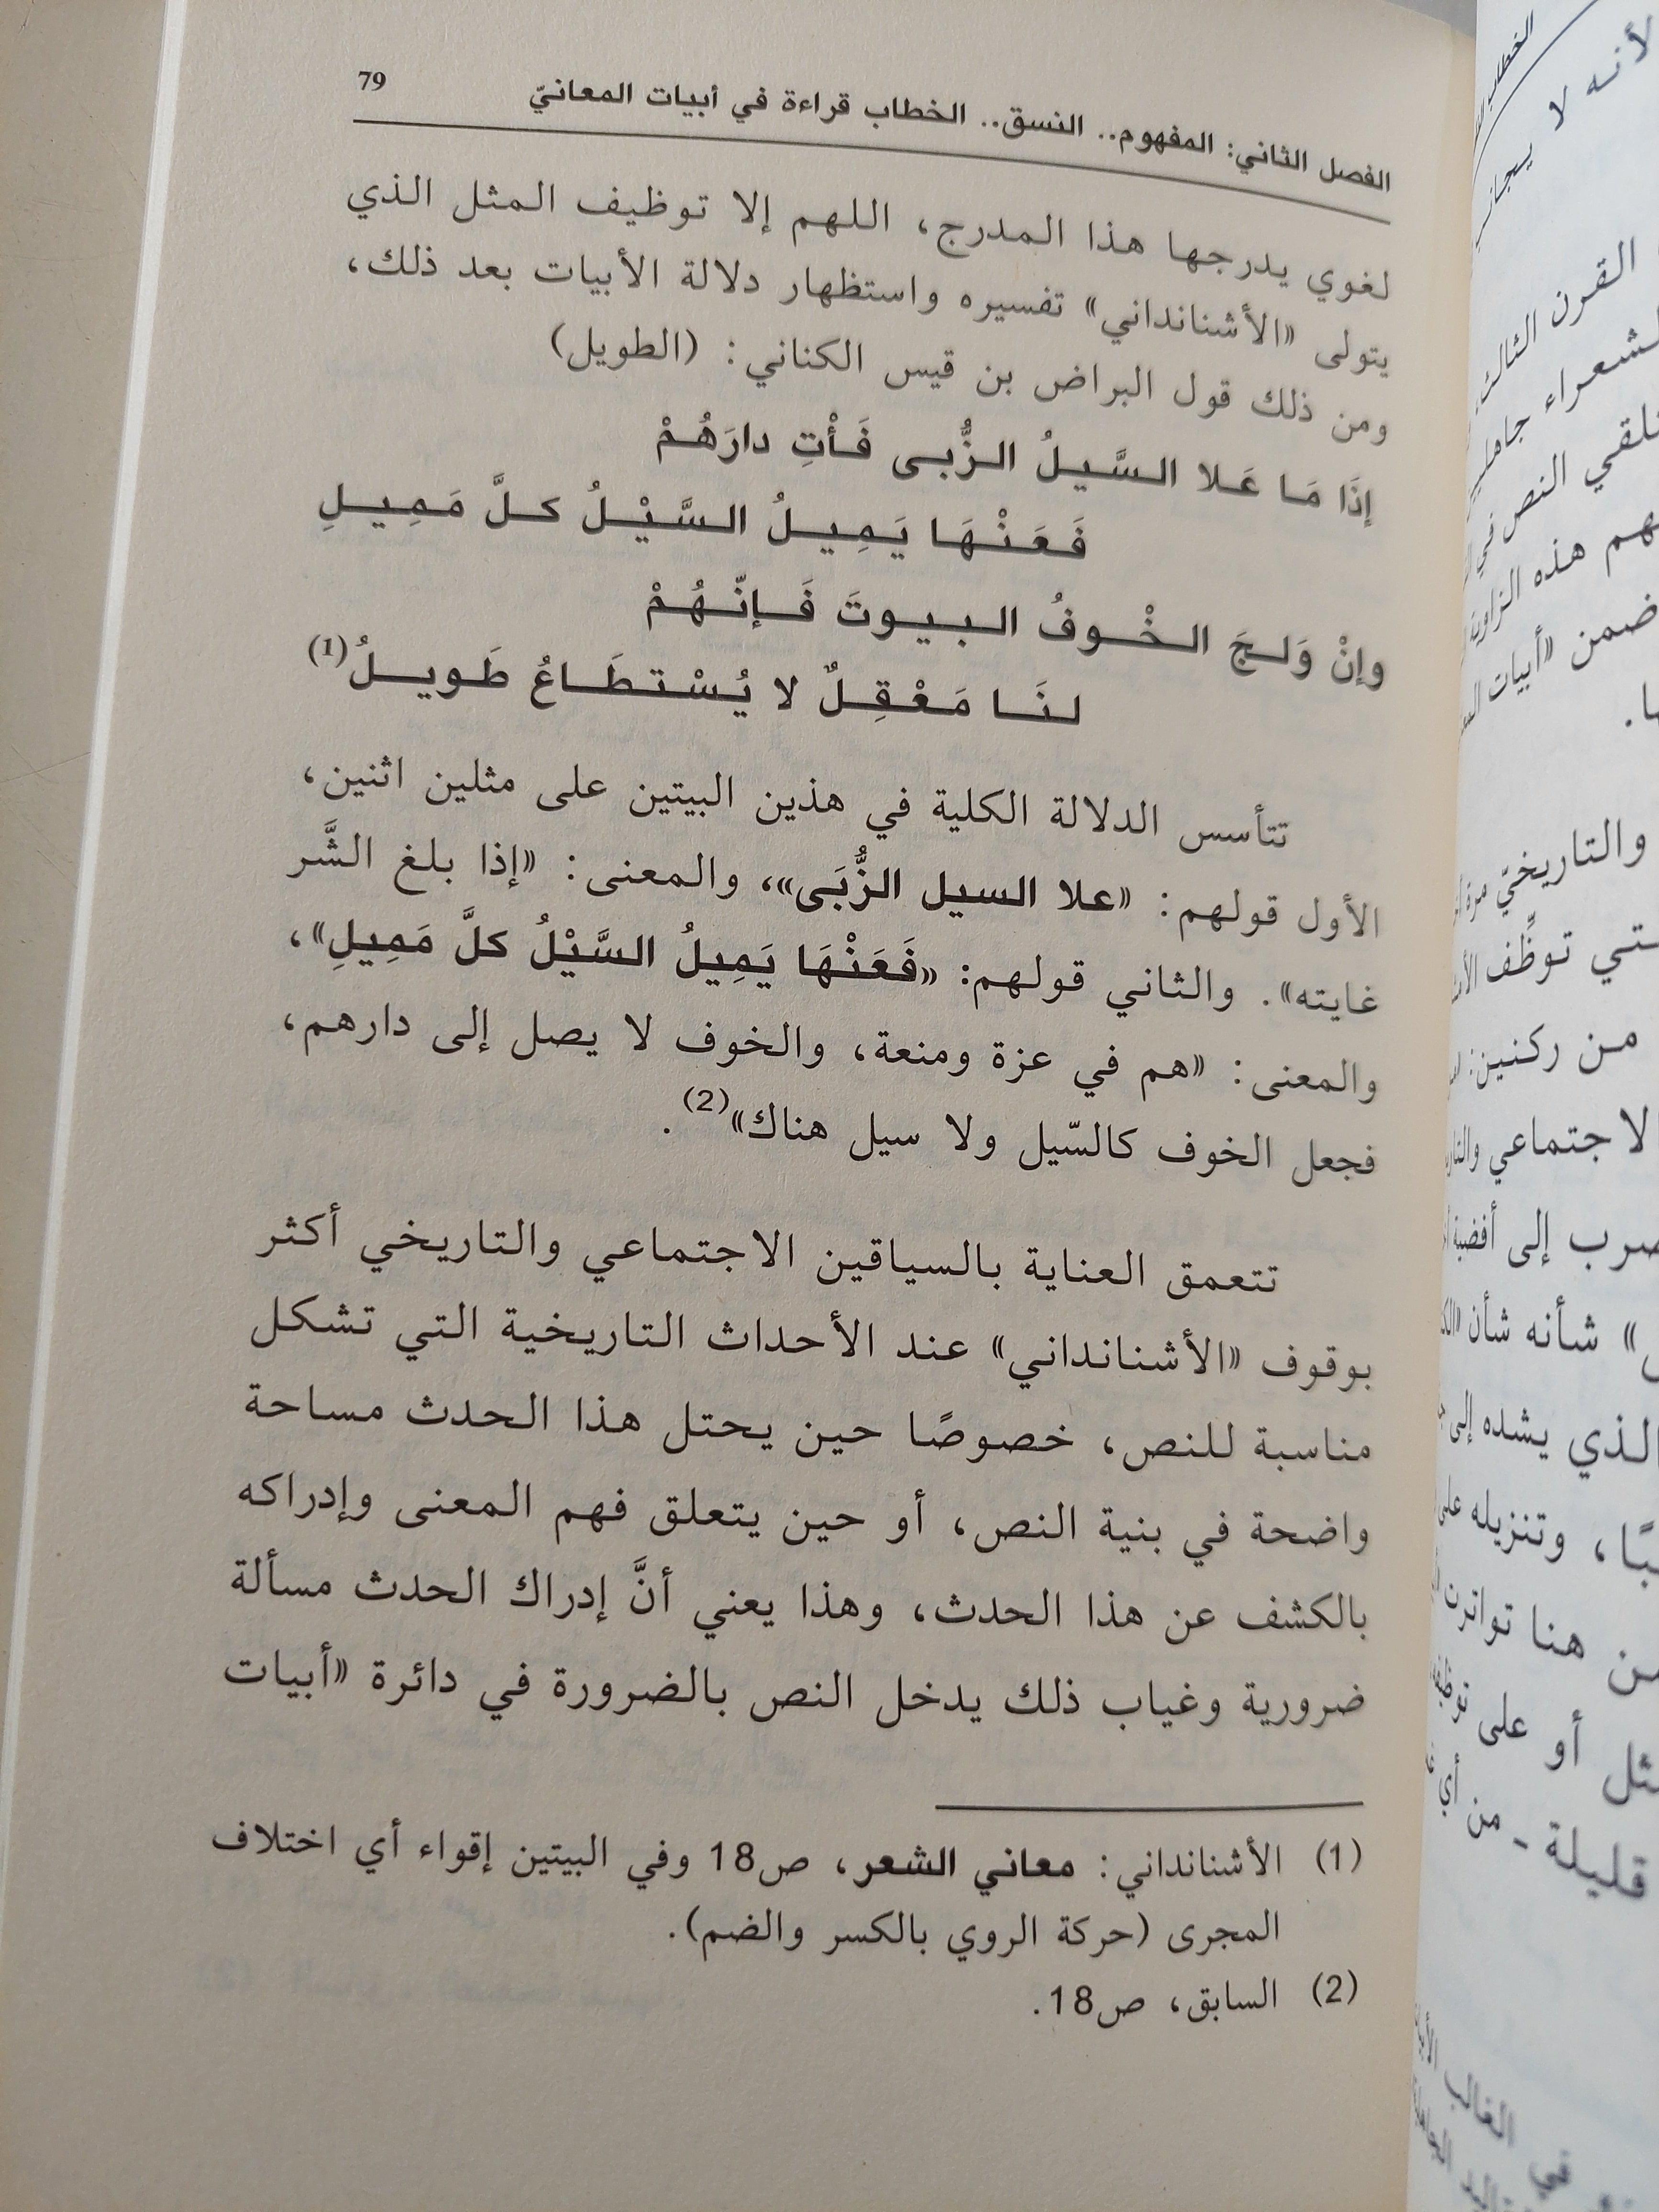 الفصل الثاني: المفهوم.. النسق.. الخطاب قراءة في أبيات المعانيّ 79
لغوي يدرجها هذا المدرج، اللهم إلا توظيف المثل الذي
يتولى «الأشنانداني» تفسيره واستظهار دلالة الأبيات بعد ذلك،
ومن ذلك قول البراض بن قيس الكناني: (الطويل)
إذَا مَا عَلا السَّيلُ الزُّبى فَأْتِ دارَهُمْ
فَعَنْهَا يَمِيلُ السَّيْلُ كلَّ مَمِيلِ
وإنْ وَلجَ الخْوفُ البيوتَ فَإنّهُمْ
لنَا مَعْقِلٌ لا يُسْتطَاعُ طَويلُ(1)
تتأسس الدلالة الكلية في هذين البيتين على مثلين اثنين،
الأول قولهم: «علا السيل الزُّبَى»، والمعنى: «إذا بلغ الشَّر
غايته». والثاني قولهم: «فَعَنْهَا يَمِيلُ السَّيْلُ كلَّ مَمِيلِ»،
والمعنى: «هم في عزة ومنعة، والخوف لا يصل إلى دارهم،
فجعل الخوف كالسّيل ولا سيل هناك»(2).
تتعمق العناية بالسياقين الاجتماعي والتاريخي أكثر
بوقوف «الأشنانداني» عند الأحداث التاريخية التي تشكل
مناسبة للنص، خصوصًا حين يحتل هذا الحدث مساحة
واضحة في بنية النص، أو حين يتعلق فهم المعنى وإدراكه
بالكشف عن هذا الحدث، وهذا يعني أنَّ إدراك الحدث مسألة
ضرورية وغياب ذلك يدخل النص بالضرورة في دائرة «أبيات
(1) الأشنانداني: معاني الشعر، ص18 وفي البيتين إقواء أي اختلاف
المجرى (حركة الروي بالكسر والضم).
(2) السابق، ص18.
لأنه لا
القرن الثالث
جاهلي
تلقي النص في
هذه الزاوية
ضمن «أبيات
والتاريخيّ مرة
توظِّف
من ركنين:
الاجتماعي
إلى أفضية
شأنه شأن
الذي يشده إلى
وتنزيله على
هنا تواترت
أو على
قليلة - من أي
في الغالب